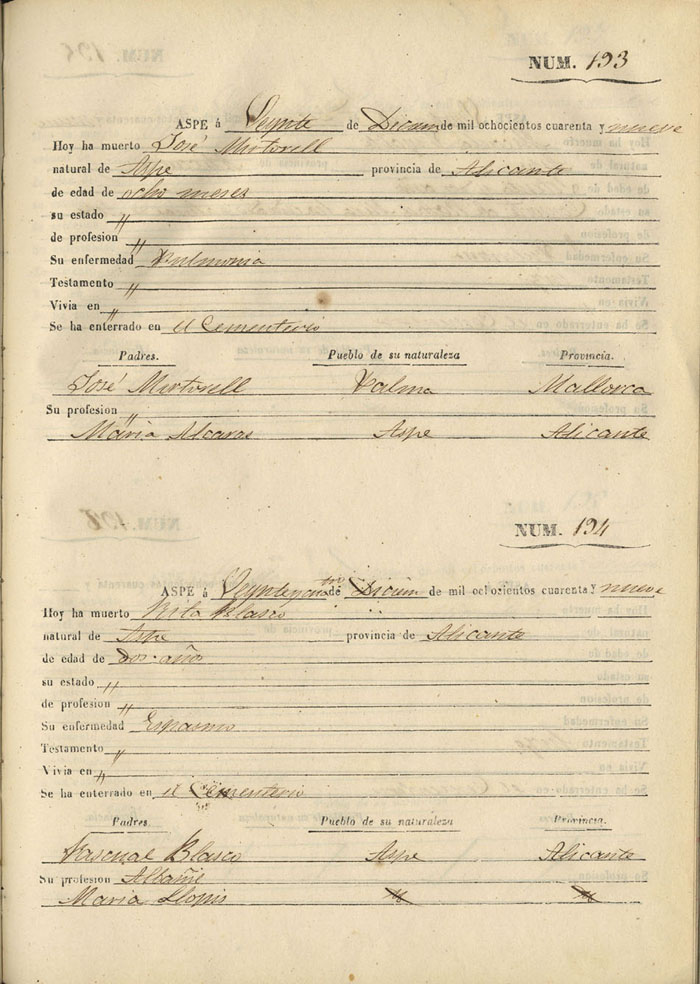 NUM. 193
ASPE á Veynte de Dicium de mil ochocientos cuarenta y nueve
Hoy ha muerto José Mirtorell
natural de Aspe provincia de Alicante
de edad de ocho meses
su estado "
de profesion "
Su enfermedad Pulmonia
Testamento "
Vivia en "
Se ha enterrado en el Cementerio
Padres. Pueblo de su naturaleza Provincia.
José Mirtorell Palma Mallorca
Su profesion "
Maria Alcaras Aspe Alicante
NUM. 194
ASPE á de Dicium de mil ochozientos cuarenta y nueve
Hoy ha muerto Blasco
natural de Aspe provincia de Alicante
de edad de dos años
su estado "
de profesion "
Su enfermedad Espasmo
Testamento "
Vivia en "
Se ha enterrado en el Cementerio
Padres. Pueblo de su naturaleza Provincia.
Pascual Blasco Aspe Alicante
Su profesion Albañil
Maria Llopis